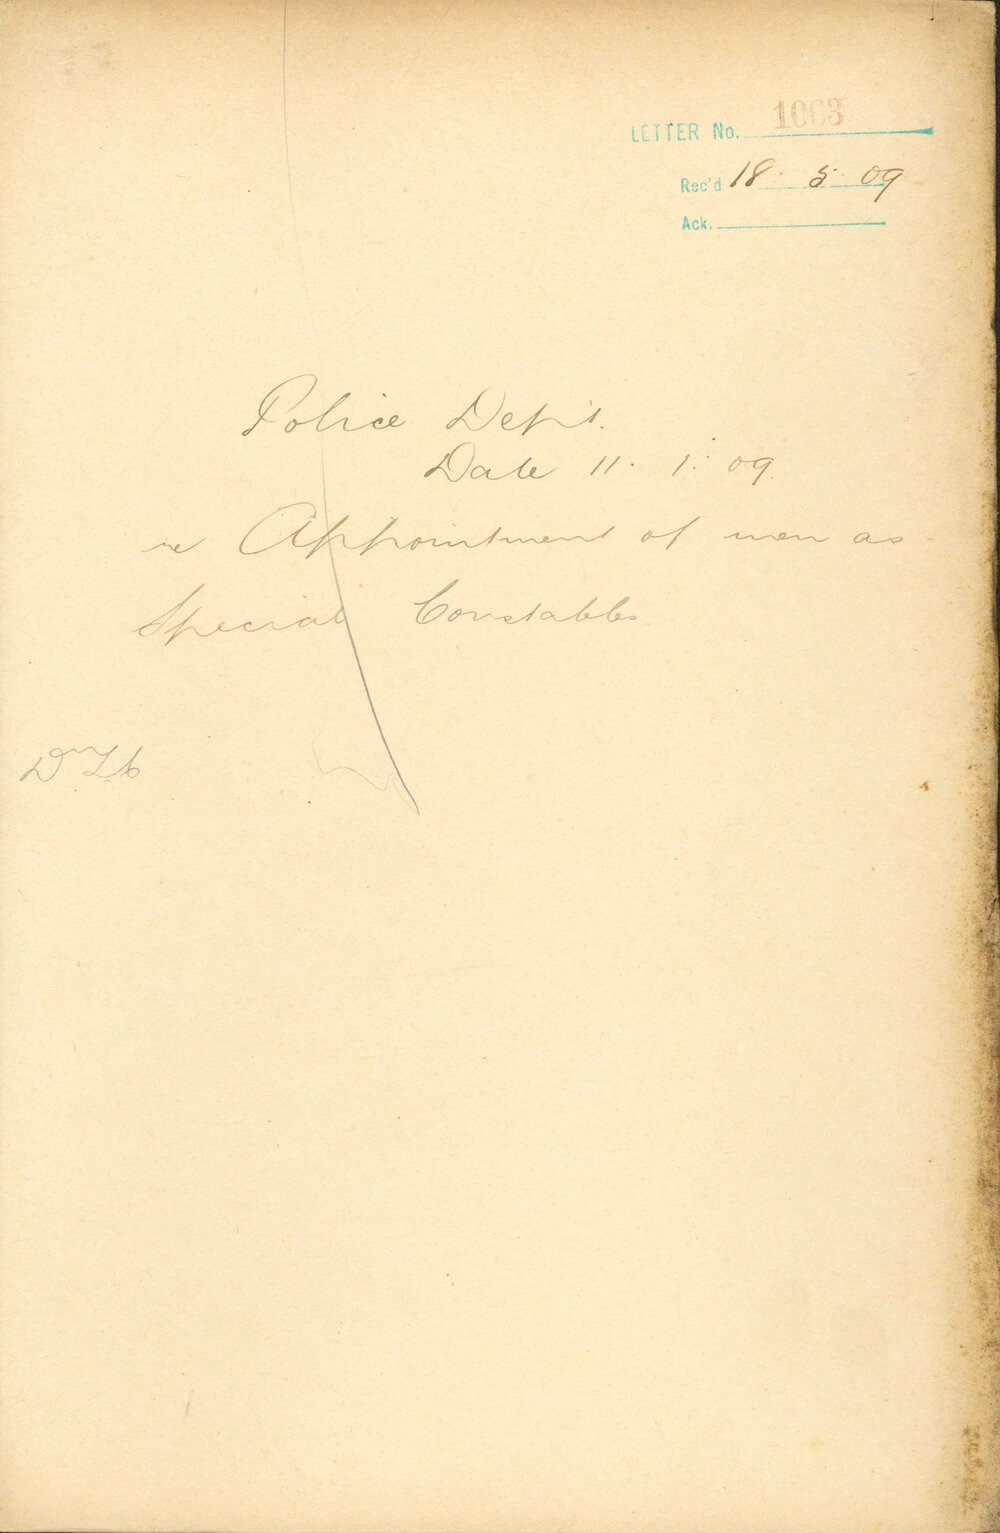 LETTER No. 1063
Rec'd 18. 5. 09
Ack.
Police Dept.
Date 11. 1. 09.
re Appointment of men as
Special Constables